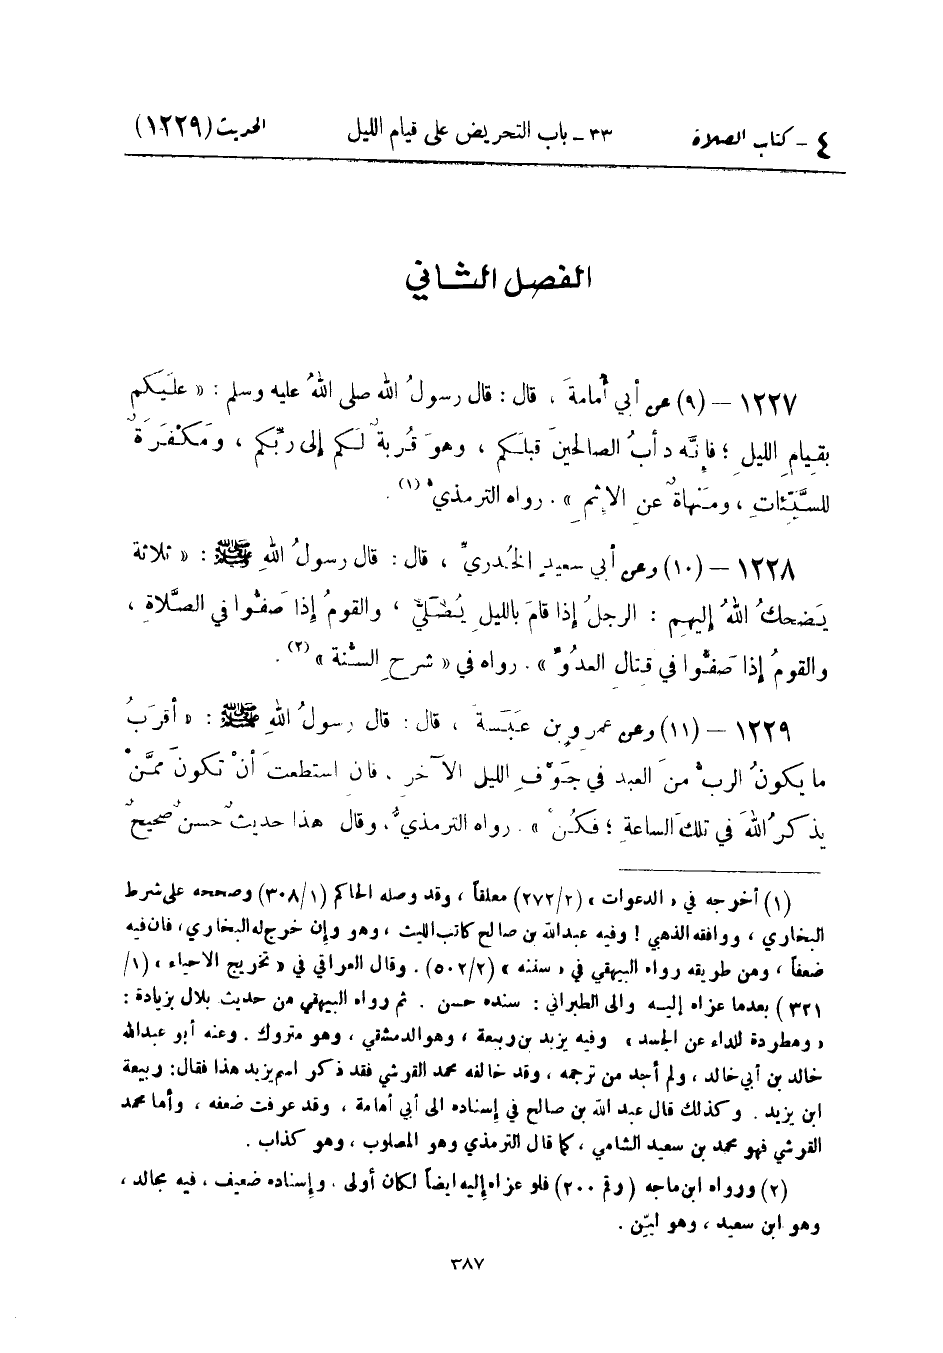 ٤ - كتاب الصلاة ٣٣ - باب التحريض على قيام الليل الحديث (١٢٢٩)
الفصل الثاني
١٢٢٧ – (٩) عن أبي أُمامةَ ، قال : قال رسولُ الله صلى اللهُ عليه وسلم : « علَيكم
بقيامِ الليلِ ؛ فإنَّه دأبُ الصالحينَ قبلَكم ، وهوَ قُربةٌ لكم إلى ربِّكم ، ومَكْفَرَةٌ
للسَّيِّئاتِ ، ومَنهاةٌ عنِ الإثمِ » . رواه الترمذيُّ (١) .
١٢٢٨ – (١٠) وعن أبي سعيدٍ الخُدريِّ ، قال : قال رسولُ اللهِ ﷺ : « ثلاثة
يَضحكُ اللهُ إليهم : الرجلُ إذا قامَ بالليلِ يُصَلِّي ، والقومُ إذا صَفُّوا في الصَّلاةِ ،
والقومُ إذا صَفُّوا في قتالِ العدُوِّ » . رواه في « شرحِ السُّنة » (٢) .
١٢٢٩ – (١١) وعن عمرِو بنِ عَبَسَةَ ، قال : قال رسولُ اللهِ ﷺ : « أقرَبُ
ما يكونُ الربُّ منَ العبد في جَوْفِ الليلِ الآخرِ ، فان استطعتَ أنْ تكونَ ممَّنْ
يذكرُ اللهَ في تلكَ الساعةِ ؛ فكُنْ » . رواه الترمذيُّ ، وقال هذا حديثٌ حسنٌ صحيحٌ
(١) أخرجه في « الدعوات » (٢/٢٧٢) معلقاً ، وقد وصله الحاكم (١/٣٠٨) وصححه على شرط
البخاري ، ووافقه الذهبي ! وفيه عبدالله بن صالح كاتب الليث ، وهو وإن خرج له البخاري ، فان فيه
ضعفاً ، ومن طريقه رواه البيهقي في « سننه » (٢/٥٠٢) . وقال العراقي في « تخريج الاحياء » (١/
٣٢١) بعدما عزاه إليه والى الطبراني : سنده حسن . ثم رواه البيهقي من حديث بلال بزيادة :
« ومطردة للداء عن الجسد » وفيه يزيد بن ربيعة ، وهو الدمشقي ، وهو متروك . وعنه أبو عبدالله
خالد بن أبي خالد ، ولم أجد من ترجمه ، وقد خالفه محمد القرشي فقد ذكر اسم يزيد هذا فقال: ربيعة
ابن يزيد . وكذلك قال عبد الله بن صالح في إسناده الى أبي أمامة ، وقد عرفت ضعفه ، وأما محمد
القرشي فهو محمد بن سعيد الشامي ، كما قال الترمذي وهو المصلوب ، وهو كذاب .
(٢) ورواه ابن ماجه (رقم ٢٠٠) فلو عزاه إليه ايضاً لكان أولى . وإسناده ضعيف ، فيه مجالد ،
وهو ابن سعيد ، وهو ليّن .
٣٨٧